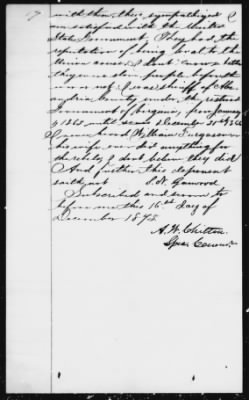 with them they sympathized
or satisfied with the United
State Government. They had the
reputation of being loyal to the
Union cause. I don't know whether
they were slave people before the
war or not. I was sheriff of
andria County under the restored
Government of Virginia, from January
1863 until December 31st
I never heard William Ferguson or
his wife ever did anything for
the rebels, I don't believe they did
And further this deponent
saith not S.
Subscribed and sworn to
before me this 16th day of
December 1873
A. W. Chilton
Spec. Commr.